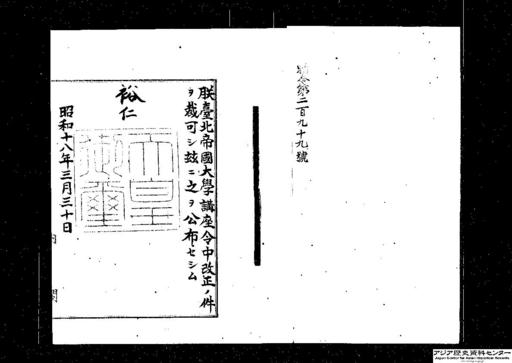 勅令第二百九十九號
朕臺北帝國大學講座令中改正ノ件
ヲ裁可シ茲ニ之ヲ公布セシム
裕仁
天皇御璽
昭和十八年三月三十日
内閣
アジア歴史資料センター
Japan Center for Asian Historical Records